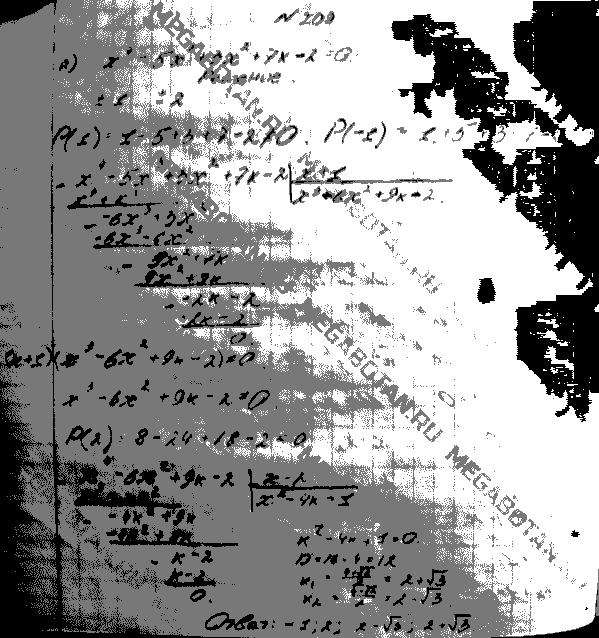 N 209
а) x⁴ - 5x³ + 3x² + 7x - 2 = 0
Решение.
± 1 ± 2
P(1) = 1 - 5 + 3 + 7 - 2 ≠ 0. P(-1) = 1 + 5 + 3
- x⁴ - 5x³ + 3x² + 7x - 2 | x + 1
x⁴ + x³ | x³ - 6x² + 9x - 2
- -6x³ + 3x²
-6x³ - 6x²
- 9x² + 7x
9x² + 9x
- -2x - 2
-2x - 2
0
(x+1)(x³ - 6x² + 9x - 2) = 0
x³ - 6x² + 9x - 2 = 0
P(2) = 8 - 24 + 18 - 2 = 0
- x³ - 6x² + 9x - 2 | x - 2
x² - 4x + 1
- -4x² + 9x
-4x² + 8x
- x - 2
x - 2
0.
x² - 4x + 1 = 0
D = 16 - 4 = 12
x₁ = = 2 + √3
x₂ = = 2 - √3
Ответ: -1; 2; 2 - √3; 2 + √3
MEGABOTAN.RU
MEGABOTAN.RU
MEGABOTAN.RU
MEGABOTAN.RU